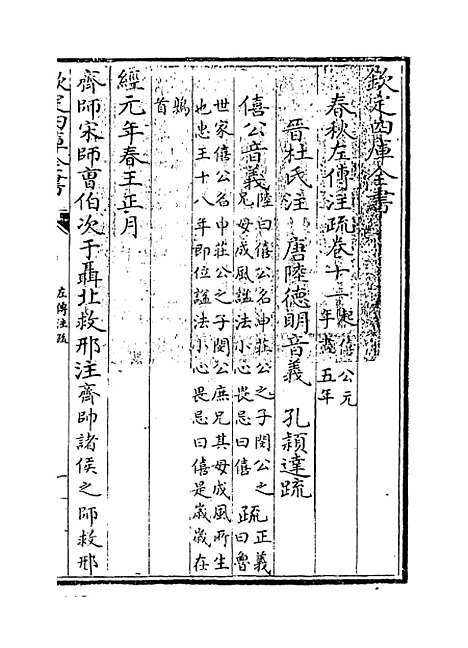 欽定四庫全書
春秋左傳注疏卷十一 起僖公元年盡五年
晉杜氏注 唐陸德明音義 孔穎達疏
僖公音義 陸曰僖公名申莊公之子閔公之兄母成風諡法小心畏忌曰僖 疏 正義曰魯
世家僖公名申莊公之子閔公庶兄其母成風所生
也惠王十八年即位諡法小心畏忌曰僖是歲歲在
鶉首
經元年春王正月
齊師宋師曹伯次于聶北救邢注齊帥諸侯之師救邢
欽定四庫全書
左傳注疏
一